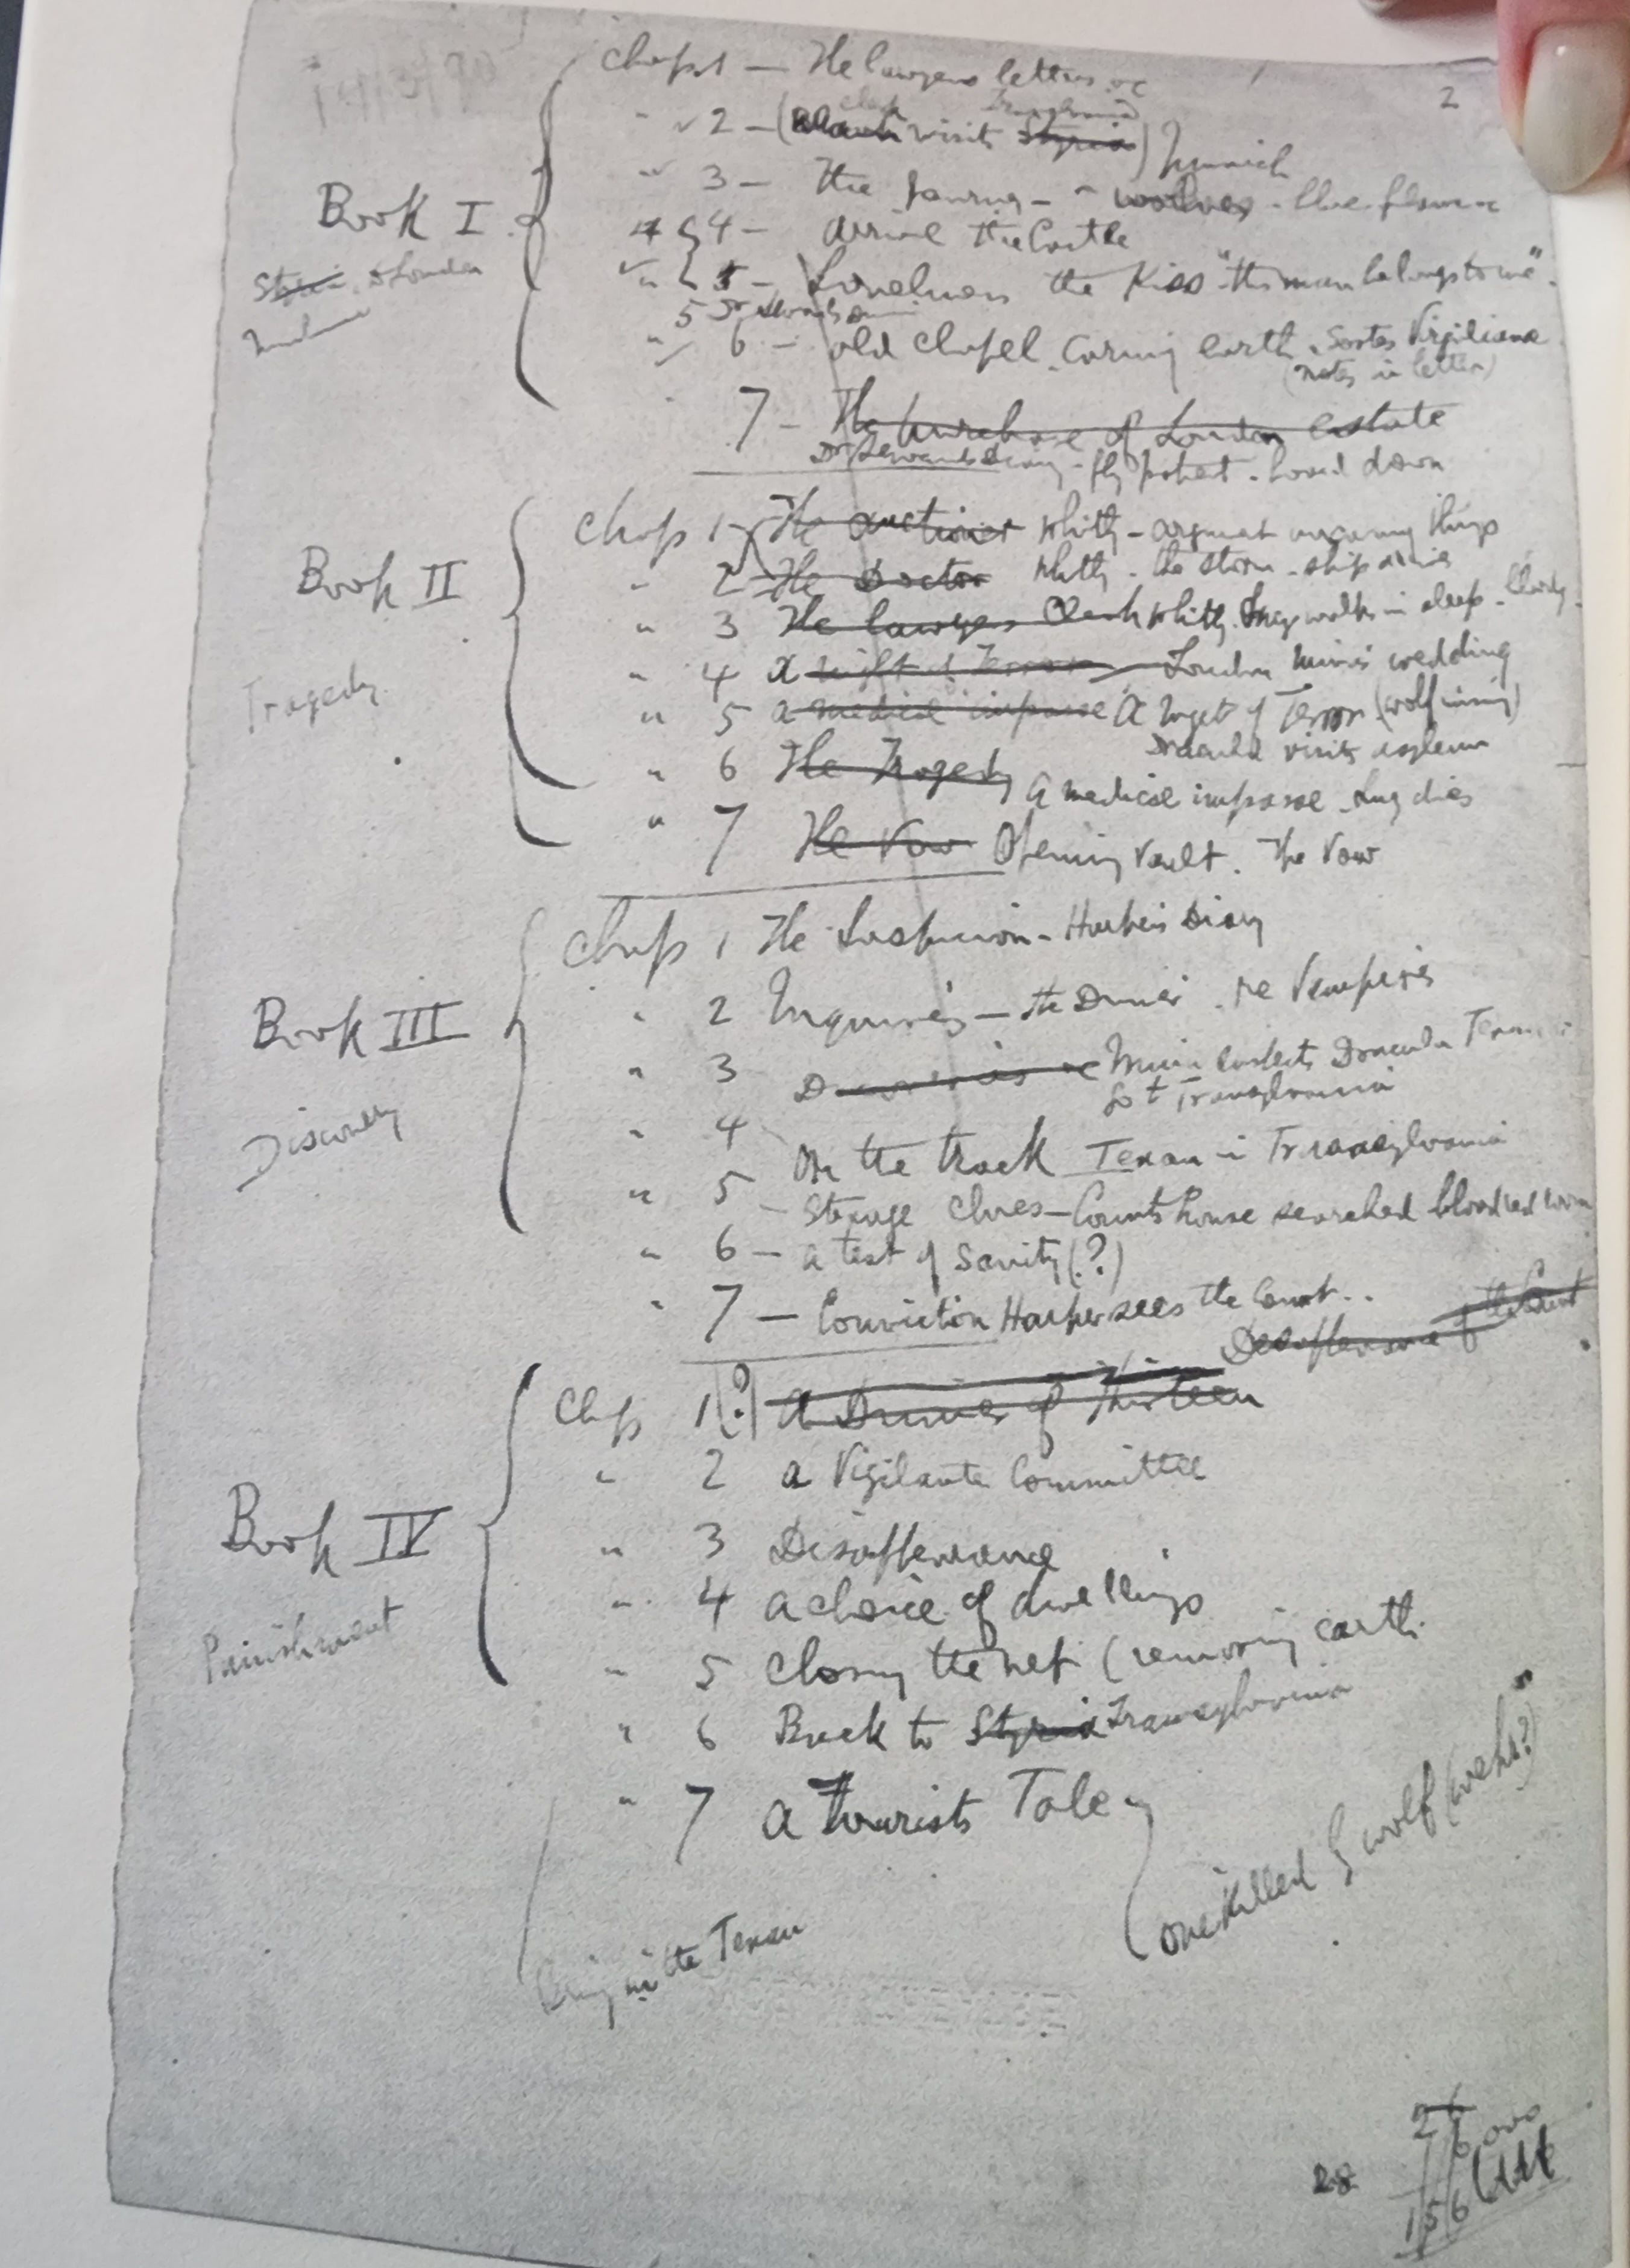 2
Chap 1 — The lawyers letters &c
Clerk Transylvania
" 2 — ( visits Styria) Munich
" 3 — The journey - wolves - blue flames &c
Book I
" 4 — arrive the Castle
" 5 — Loneliness the Kiss "this man belongs to me".
Styria to London
5 Dr Sewards Diary
" 6 — old chapel. Carrying earth. Sortes Virgilianae
(notes in letters)
7 — The purchase of London estate
Dr Sewards diary - fly patient.
Chap 1 — The auctioneer Whitby - argument uncanny things
Book II
" 2 — The Doctor Whitby - the storm - ship arrives
" 3 The lawyers Clerk Whitby. Lucy walks in sleep - bloody.
" 4 A night of Terror London Mina's wedding
Tragedy
" 5 a medical impasse A night of Terror (wolf missing)
Dracula visits asylum
" 6 The Tragedy
A medical impasse. Lucy dies
" 7 The Vow Opening vault. The Vow
Chap 1 The Suspicion - Harker's Diary
Book III
2 Inquiries — the Dinner. re Vampires
" 3 Mina suspects Dracula Texan
to Transylvania
Discovery
" 4
On the track Texan in Transylvania
" 5 - Strange clues — Counts house searched blood red room
" 6 — a test of Sanity (?)
" 7 — Conviction Harker sees the Count..
Disappearance of the Count
Chap 1(?) A Dinner of Thirteen
" 2 a Vigilante Committee
Book IV
" 3 Disappearance
" 4 a choice of dwellings
Punishment
" 5 Closing the net (removing earth.
" 6 Back to Styria Transylvania
" 7 a tourists Tale
one killed by wolf (wehr?)
Bring in the Texan
26
28
156